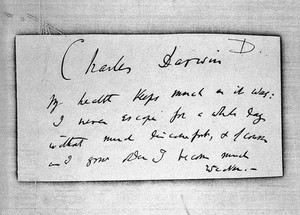 Charles Darwin D.
My health keeps much as it was:
I never escape for a whole day
without much discomfort, & of course
as I grow older I become much
weaker.—